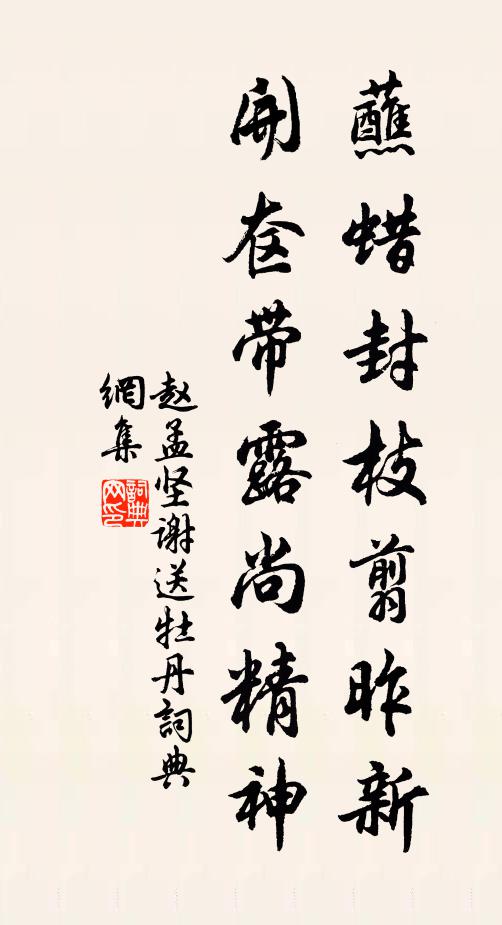 蘸蜡封枝翦昨新
開奁带露尚精神
赵孟坚谢送牡丹詞典
網集
詞典
网印